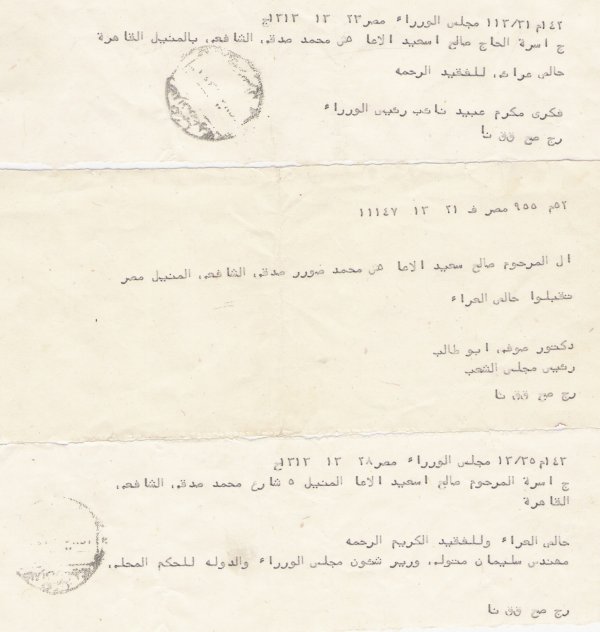 ١٤٢م ١١٣/٢١ مجلس الوزراء مصر ٢٣ ١٣ ١٣١٣ج
ج اسرة الحاج صالح اسعيد الاغا ٥ش محمد صدقي الشافعي بالمنيل القاهرة
خالص عزائي للفقيد الرحمه
فكرى مكرم عبيد نائب رئيس الوزراء
رج صح قق نا
٥٢م ٩٥٥ مصر ف ٢١ ١٣ ١١١٤٧
ال المرحوم صالح سعيد الاغا ٥ش محمد صدقي الشافعي المنيل مصر
تقبلوا خالص العزاء
دكتور صوفي ابو طالب
رئيس مجلس الشعب
رج صح قق نا
١٤٢م ١٢/٢٥ مجلس الوزراء مصر ٢٨ ١٣ ١٣١٢ج
ج اسرة المرحوم صالح اسعيد الاغا المنيل ٥ شارع محمد صدقي الشافعي
القاهرة
خالص العزاء وللفقيد الكريم الرحمه
مهندس سليمان متولي وزير شئون مجلس الوزراء والدوله للحكم المحلي
رج صح قق نا